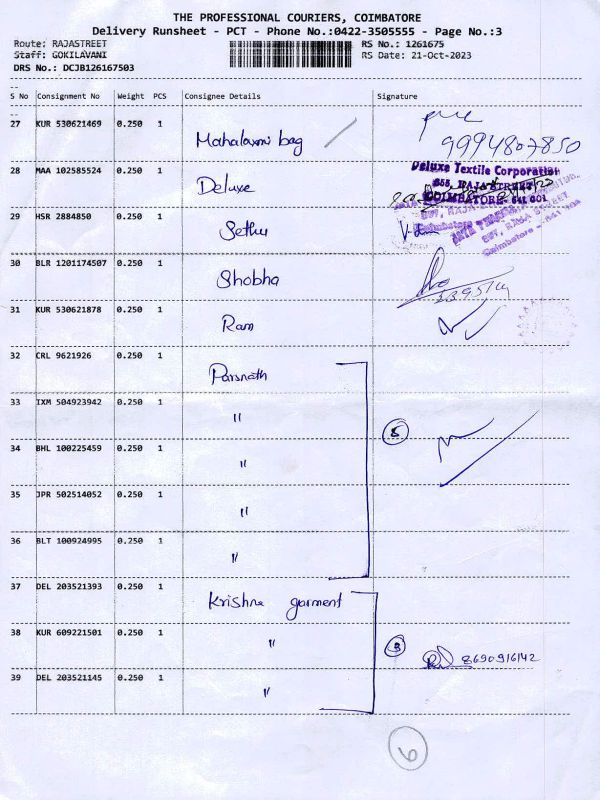 THE PROFESSIONAL COURIERS, COIMBATORE
Delivery Runsheet - PCT - Phone No.:0422-3505555 - Page No.:3
Route: RAJASTREET
Staff: GOKILAVANI
DRS No.: DCJB126167503
RS No.: 1261675
RS Date: 21-Oct-2023
S No Consignment No Weight PCS Consignee Details Signature
27 KUR 530621469 0.250 1 Mahalaxmi bag 9994807850
28 MAA 102585524 0.250 1 Deluxe
Deluxe Textile Corporation
855, RAJA STREET
COIMBATORE- 641 001
29 HSR 2884850 0.250 1 Sethu
30 BLR 1201174507 0.250 1 Shobha
31 KUR 530621878 0.250 1 Ram
32 CRL 9621926 0.250 1 Parsnath
33 IXM 504923942 0.250 1 "
5
34 BHL 100225459 0.250 1 "
35 JPR 502514052 0.250 1 "
36 BLT 100924995 0.250 1 "
37 DEL 203521393 0.250 1 Krishna garment
38 KUR 609221501 0.250 1 " 3
8690916142
39 DEL 203521145 0.250 1 "
6